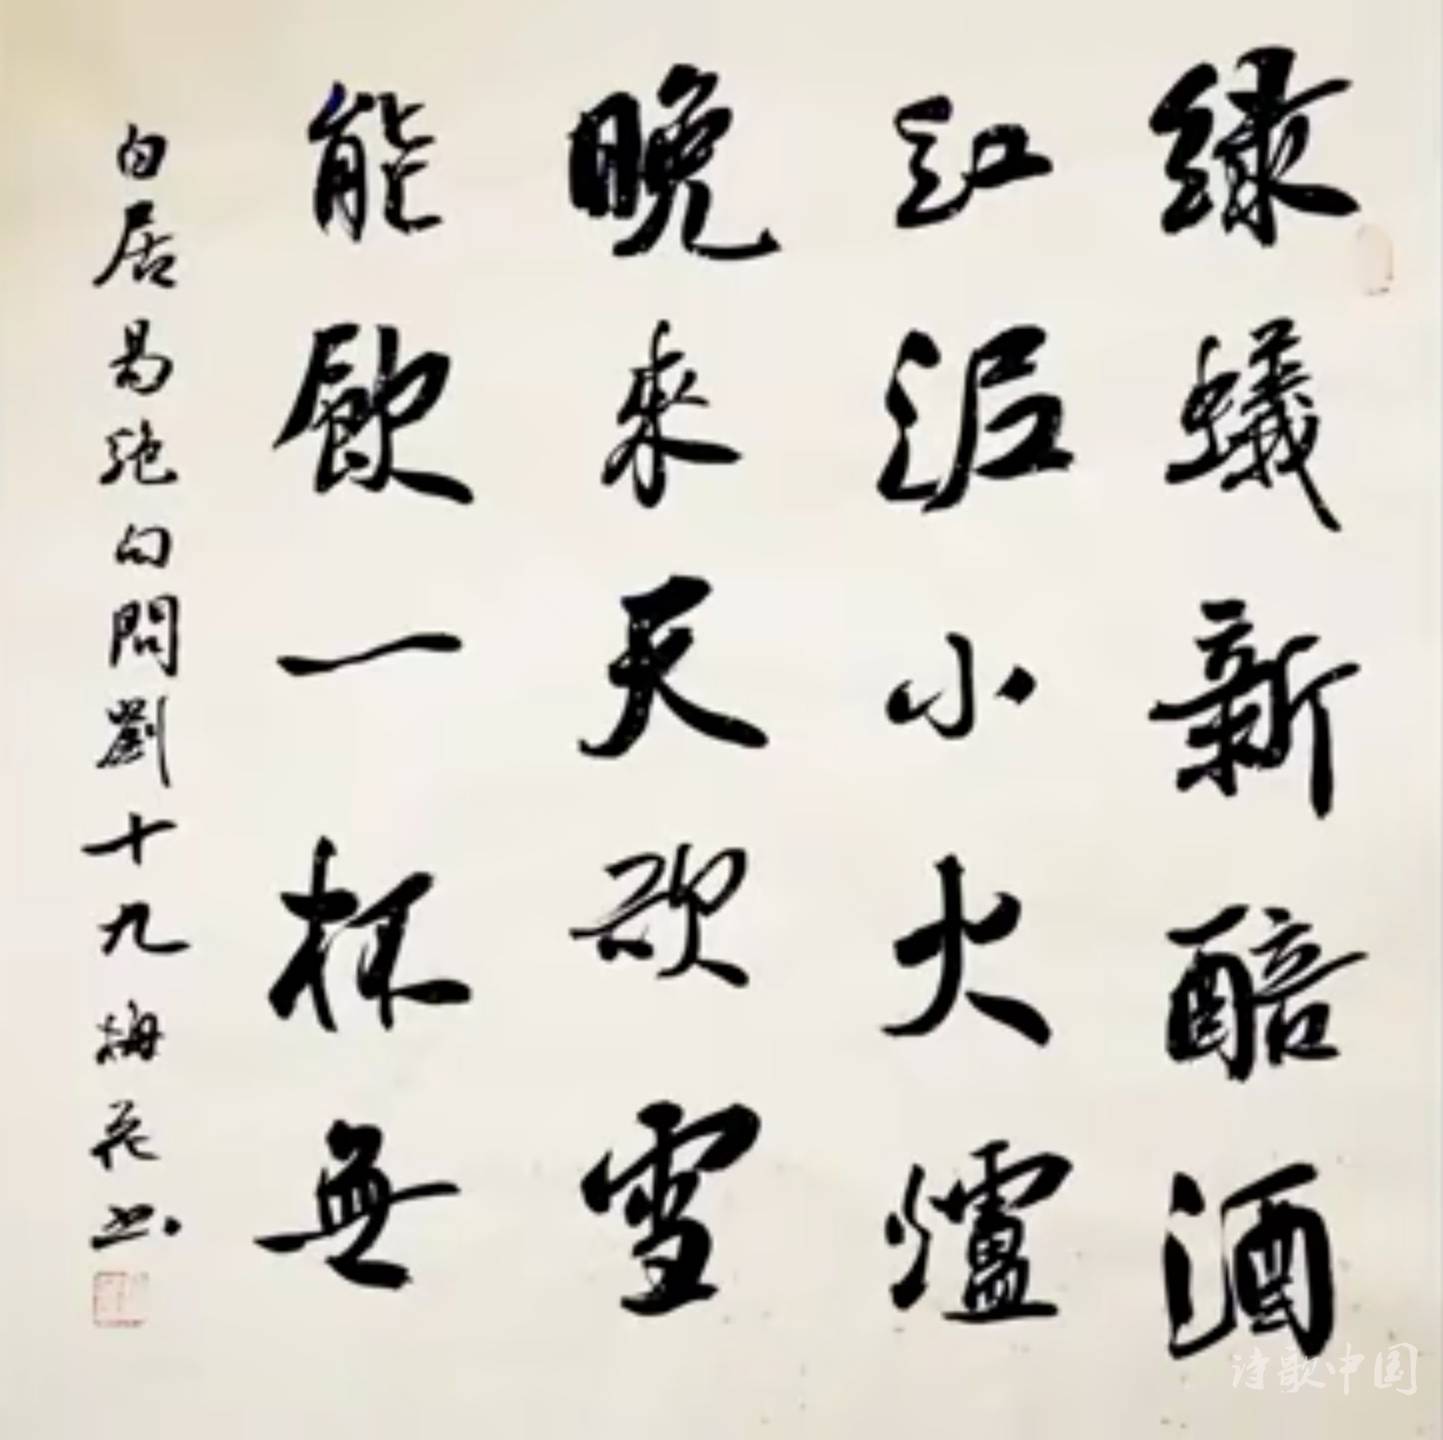 绿蟻新醅酒
红泥小火爐
晚來天欲雪
能飲一杯無
白居易绝句問劉十九梅花书
诗歌中国